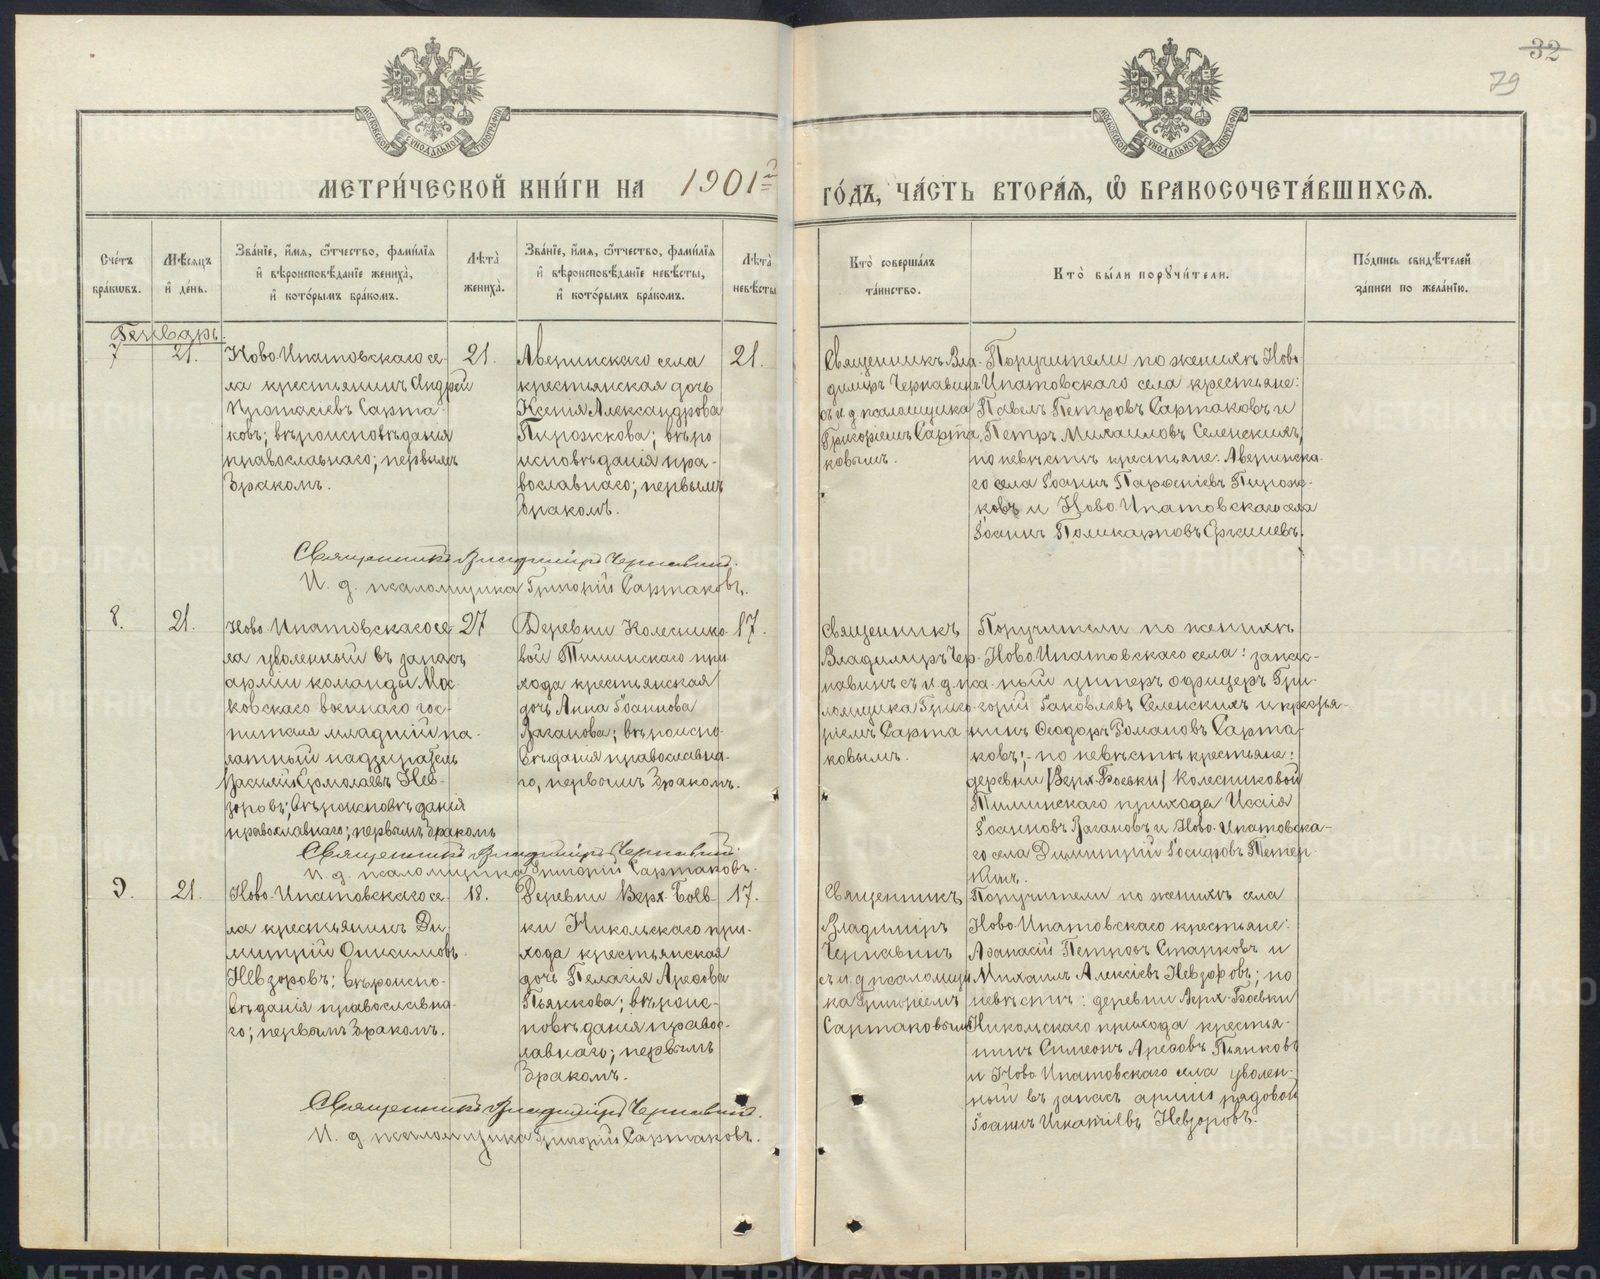 32
79
МОСКОВСКОЙ СѴНОДАЛЬНОЙ ТИПОГРАФІИ
МОСКОВСКОЙ СѴНОДАЛЬНОЙ ТИПОГРАФІИ
МЕТРИ́ЧЕСКОЙ КНИ́ГИ НА 1901 ГО́ДЪ, ЧА́СТЬ ВТОРА́Я, Ѽ БРАКОСОЧЕТА́ВШИХСЯ.
Сче́тъ
бра́кѡвъ.
Мѣ́сяцъ
и҆ де́нь.
Зва́нїе, и҆́мя, ѻ҆́тчество, фами́лїя
и҆ вѣроисповѣ́данїе жениха̀,
и҆ кото́рымъ бра́комъ.
Лѣ́та
жениха̀.
Зва́нїе, и҆́мя, ѻ҆́тчество, фами́лїя
и҆ вѣроисповѣ́данїе невѣ́сты,
и҆ кото́рымъ бра́комъ.
Лѣ́та
невѣ́сты
Кто̀ соверша́лъ
та́инство.
Кто̀ бы́ли порꙋчи́тели.
По́дпись свидѣ́телей
за́писи по жела́нїю.
Генварь.
7
21.
Ново-Ипатовскаго се-
ла крестьянинъ Андрей
Протасіевъ Сарта-
ковъ; вѣроисповѣданія
православнаго; первымъ
бракомъ.
21.
Аверинскаго села
крестьянская дочь
Ксенія Александрова
Пирожкова; вѣро
исповѣданія пра-
вославнаго; первымъ
бракомъ.
21.
Священникъ Вла-
димиръ Чернавинъ
съ и.д. псаломщика
Григоріемъ Сарта
ковымъ.
Поручители по женихѣ Ново-
Ипатовскаго села крестьяне:
Павелъ Петровъ Сартаковъ и
Петръ Михаиловъ Селенскихъ,
по невѣстѣ крестьяне: Аверинска-
го села Іоаннъ Пирож-
ковъ и Ново Ипатовскаго села
Іоаннъ Поликарповъ
Священникъ Владиміръ Чернавинъ.
И. д. псаломщика Григорій Сартаковъ.
8.
21.
Ново-Ипатовскаго се
ла уволенный въ запасъ
арміи команды Мос-
ковскаго военнаго гос-
питаля младшій па-
латный надзиратель
Василій Ермолаевъ Нев-
зоровъ; вѣроисповѣданія
православнаго; первымъ бракомъ
27
Деревни Колеснико-
вой Тиминскаго при
хода крестьянская
дочь Анна Іоаннова
Ваганова; вѣроиспо-
вѣданія православна-
го, первымъ бракомъ.
17.
Священникъ
Владимиръ Чер-
навинъ съ и.д. пса-
ломщика Григо-
ріемъ Сарта
ковымъ.
Поручители по женихѣ
Ново Ипатовскаго села: запас-
ный унтеръ офицеръ Гри-
горій Іаковлевъ Селенскихъ и крестья-
нинъ Ѳеодоръ Романовъ Сарта-
ковъ; по невѣстѣ крестьяне:
деревни /Верх-Боевки/ Колесниковой
Тиминскаго прихода Исаія
Іоанновъ Вагановъ и Ново-Ипатовска-
го села Димитрій Іосифовъ Тетер-
кинъ.
Священникъ Владиміръ Чернавинъ.
И. д. псаломщика Григорій Сартаковъ.
9.
21.
Ново-Ипатовскаго се-
ла крестьянинъ Ди-
митрій Онисимовъ
Невзоровъ; вѣроиспо-
вѣданія православна-
го; первымъ бракомъ.
18.
Деревни Верх-Боев-
ки Никольскаго при-
хода крестьянская
дочь Пелагія Арефова
Пьянкова; вѣроис-
повѣданія правос-
лавнаго; первымъ
бракомъ.
17.
Священникъ
Владиміръ
Чернавинъ
съ и.д. псаломщи
ка Григоріемъ
Сартаковымъ
Поручители по женихѣ села
Ново-Ипатовскаго крестьяне:
Аѳанасій Петровъ Старковъ и
Михаилъ Алексіевъ Невзоровъ; по
невѣстѣ: деревни Верх-Боевки
Никольскаго прихода крестья-
нинъ Симеонъ Арефовъ Пьянковъ
и Ново Ипатовскаго села уволен-
ный въ запасъ арміи рядовой
Іоаннъ Игнатіевъ Невзоровъ.
Священникъ Владиміръ Чернавинъ.
И. д. псаломщика Григорій Сартаковъ.